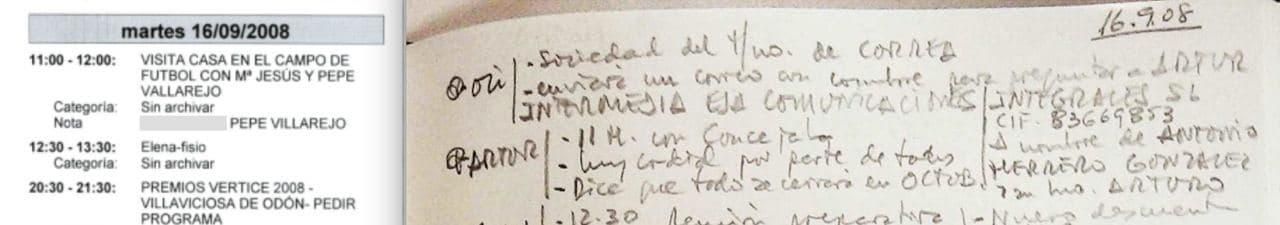 martes 16/09/2008
11:00 - 12:00: VISITA CASA EN EL CAMPO DE
FUTBOL CON Mª JESÚS Y PEPE
VALLAREJO
Categoria: Sin archivar
Nota PEPE VILLAREJO
12:30 - 13:30: Elena-fisio
Categoria: Sin archivar
20:30 - 21:30: PREMIOS VERTICE 2008 -
VILLAVICIOSA DE ODÓN- PEDIR
PROGRAMA
16.9.08
- Sociedad del de CORREA
- enviará un correo con nombre para preguntar a ARTUR
INTERMEDIA EJA COMUNICACIONES INTEGRALES SL
CIF. 83669853
ARTUR - 11 M. con Concejala
A nombre de ANTONIO
- Muy cordial por parte de todos
HERRERO GONZALEZ
- Dice que todo se cerrará en OCTUB.
ARTURO
- 12.30 Reunión preparativa - Nuevo